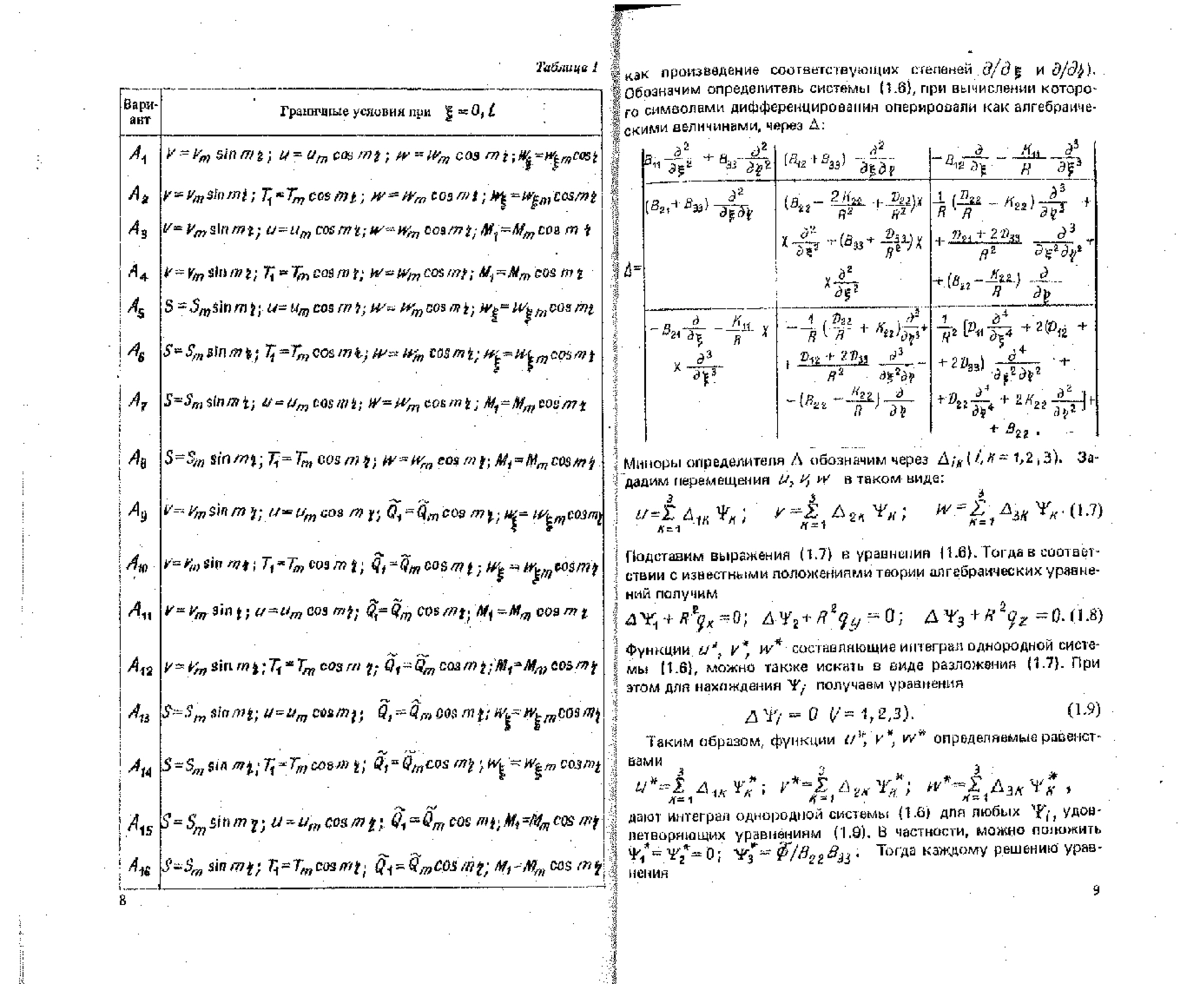 Таблица 1
Вари-
ант
Граничные условия при ξ = 0, l
A₁ v = vₘ sin mη; u = uₘ cos mη; w = wₘ cos mη; w_ξ = w_ξm cos η
A₂ v = vₘ sin mη; T₁ = Tₘ cos mη; w = wₘ cos mη; w_ξ = w_ξm cos mη
A₃ v = vₘ sin mη; u = uₘ cos mη; w = wₘ cos mη; M₁ = Mₘ cos mη
A₄ v = vₘ sin mη; T₁ = Tₘ cos mη; w = wₘ cos mη; M₁ = Mₘ cos mη
A₅ S = Sₘ sin mη; u = uₘ cos mη; w = wₘ cos mη; w_ξ = w_ξm cos mη
A₆ S = Sₘ sin mη; T₁ = Tₘ cos mη; w = wₘ cos mη; w_ξ = w_ξm cos mη
A₇ S = Sₘ sin mη; u = uₘ cos mη; w = wₘ cos mη; M₁ = Mₘ cos mη
A₈ S = Sₘ sin mη; T₁ = Tₘ cos mη; w = wₘ cos mη; M₁ = Mₘ cos mη
A₉ v = vₘ sin mη; u = uₘ cos mη; Q̃₁ = Q̃ₘ cos mη; w_ξ = w_ξm cos mη
A₁₀ v = vₘ sin mη; T₁ = Tₘ cos mη; Q̃₁ = Q̃ₘ cos mη; w_ξ = w_ξm cos mη
A₁₁ v = vₘ sin η; u = uₘ cos mη; Q̃₁ = Q̃ₘ cos mη; M₁ = Mₘ cos mη
A₁₂ v = vₘ sin mη; T₁ = Tₘ cos mη; Q̃₁ = Q̃ₘ cos mη; M₁ = Mₘ cos mη
A₁₃ S = Sₘ sin mη; u = uₘ cos mη; Q̃₁ = Q̃ₘ cos mη; w_ξ = w_ξm cos mη
A₁₄ S = Sₘ sin mη; T₁ = Tₘ cos mη; Q̃₁ = Q̃ₘ cos mη; w_ξ = w_ξm cos mη
A₁₅ S = Sₘ sin mη; u = uₘ cos mη; Q̃₁ = Q̃ₘ cos mη; M₁ = Mₘ cos mη
A₁₆ S = Sₘ sin mη; T₁ = Tₘ cos mη; Q̃₁ = Q̃ₘ cos mη; M₁ = Mₘ cos mη
8
как произведение соответствующих степеней ∂/∂ξ и ∂/∂η).
Обозначим определитель системы (1.6), при вычислении которо-
го символами дифференцирования оперировали как алгебраиче-
скими величинами, через Δ:
B₁₁ ∂²/∂ξ² + B₃₃ ∂²/∂η² | (B₁₂ + B₃₃) ∂²/∂ξ∂η | −B₁₂ ∂/∂ξ − K₁₁/R ∂³/∂ξ³
(B₂₁ + B₃₃) ∂²/∂ξ∂η | (B₂₂ − 2K₂₂/R² + D₂₂/R²)× | 1/R (D₂₂/R − K₂₂) ∂³/∂η³ +
× ∂²/∂ξ² + (B₃₃ + D₃₃/R²)× | + D₂₁ + 2D₃₃/R² ∂³/∂ξ²∂η² +
Δ= × ∂²/∂ξ² | + (B₂₂ − K₂₂/R) ∂/∂η
−B₂₁ ∂/∂ξ − K₁₁/R × | −1/R (D₂₂/R + K₂₂) ∂³/∂η³ + | 1/R² [D₁₁ ∂⁴/∂ξ⁴ + 2(D₁₂ +
× ∂³/∂ξ³ | + D₁₂ + 2D₃₃/R² ∂³/∂ξ²∂η − | + 2D₃₃) ∂⁴/∂ξ²∂η² +
− (B₂₂ − K₂₂/R) ∂/∂η | + D₂₂ ∂⁴/∂η⁴ + 2K₂₂ ∂²/∂η²] +
+ B₂₂ .
Миноры определителя Δ обозначим через Δᵢₖ (i, k = 1,2,3). За-
дадим перемещения u, v, w в таком виде:
u = Σ³ₖ₌₁ Δ₁ₖ Ψₖ; v = Σ³ₖ₌₁ Δ₂ₖ Ψₖ; w = Σ³ₖ₌₁ Δ₃ₖ Ψₖ. (1.7)
Подставим выражения (1.7) в уравнения (1.6). Тогда в соответ-
ствии с известными положениями теории алгебраических уравне-
ний получим
ΔΨ₁ + R²qₓ = 0; ΔΨ₂ + R²q_y = 0; ΔΨ₃ + R²q_z = 0. (1.8)
Функции u*, v*, w* составляющие интеграл однородной систе-
мы (1.6), можно также искать в виде разложения (1.7). При
этом для нахождения Ψᵢ получаем уравнения
ΔΨᵢ = 0 (i = 1,2,3). (1.9)
Таким образом, функции u*, v*, w* определяемые равенст-
вами
u* = Σ³ₖ₌₁ Δ₁ₖ Ψₖ*; v* = Σ³ₖ₌₁ Δ₂ₖ Ψₖ*; w* = Σ³ₖ₌₁ Δ₃ₖ Ψₖ* ,
дают интеграл однородной системы (1.6) для любых Ψᵢ, удов-
летворяющих уравнениям (1.9). В частности, можно положить
Ψ₁* = Ψ₂* = 0; Ψ₃* = Φ/B₂₂B₃₃. Тогда каждому решению урав-
нения
9